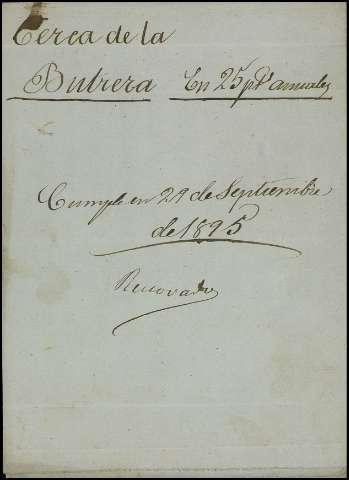 Cerca de la
Butrera En 25 pts anuales
Cumple en 29 de Septiembre
de 1895
Renovado